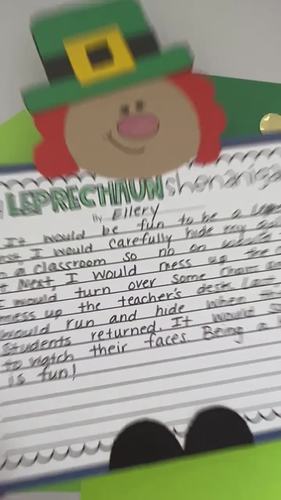 LEPRECHAUN shenaniga
By Ellery
It would be fun to be a
I would carefully hide my
a classroom so no on
Next I would mess up the
would turn over some chairs
mess up the teacher's desk.
would run and hide when
students returned. It would
to watch their faces. Being a
is fun!